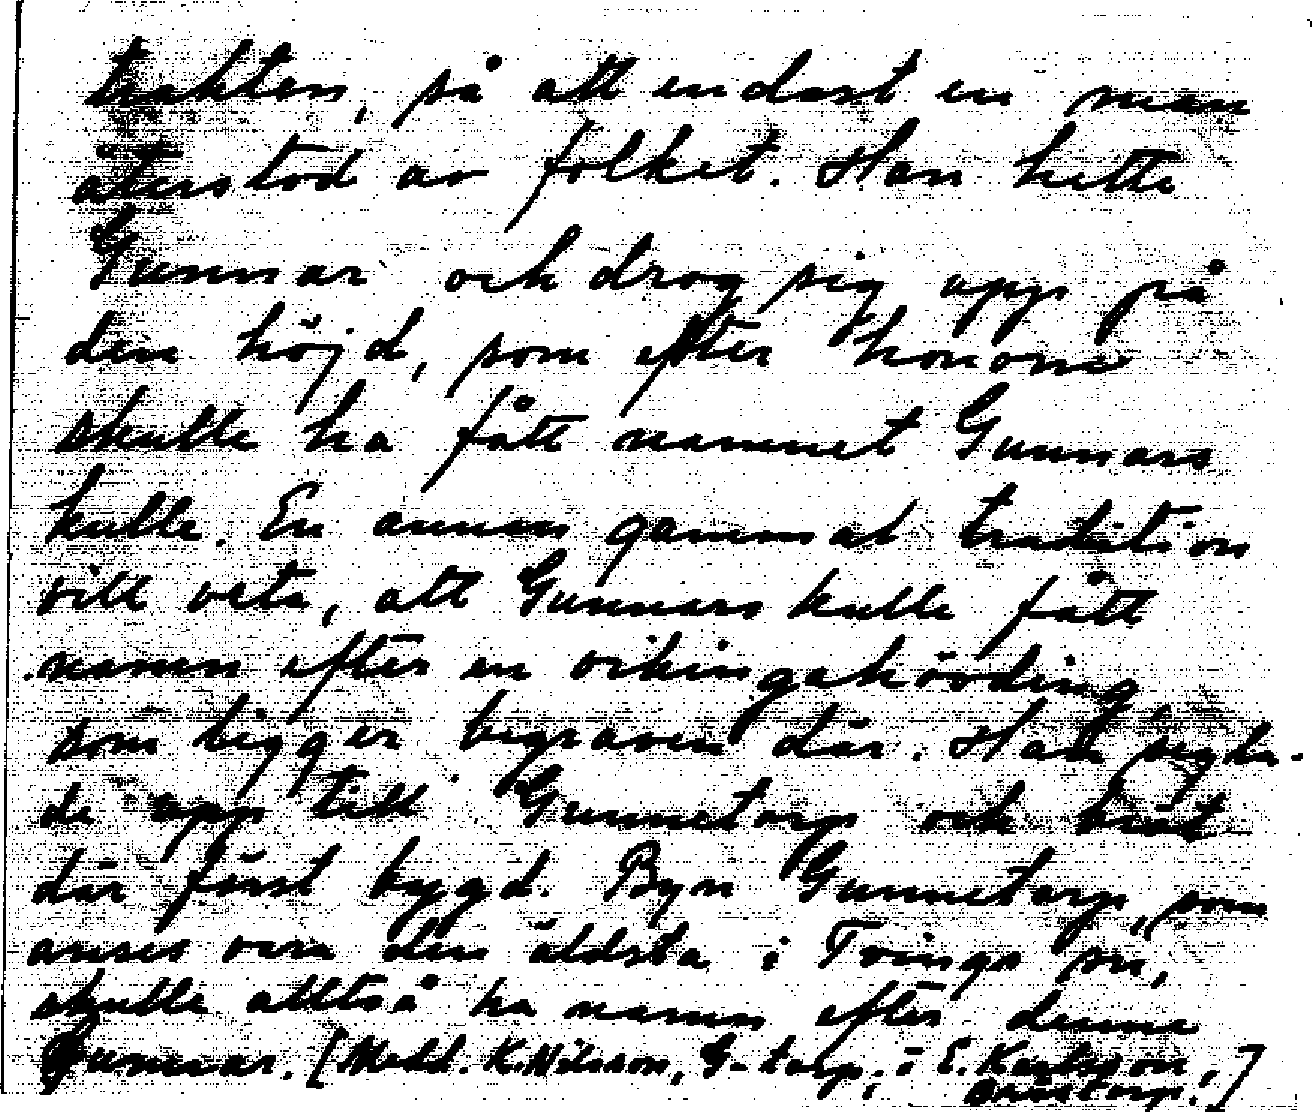 trakten, så att endast en man
återstod av folket. Han hette
Gunnar och drog sig upp på
den höjd, som efter honom
skulle ha fått namnet Gunnars
kulle. En annan gammal tradition
vill veta, att Gunnars kulle fått
namn efter en vikingahövding,
som ligger begraven där. Han bygda-
de upp till Gunnetorp och bröt
där först bygd. Byn Gunnetorp, som
anses vara den äldsta i Tvings sn,
skulle alltså ha namn efter denne
Gunnar. [Medd. K. Nilsson, G-torp, i E. Karlsson,
]